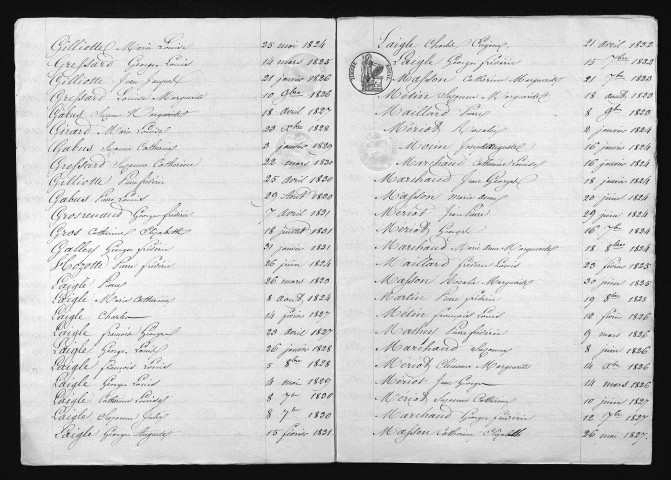 Gilliotte Marie Louise 25 mai 1824
Gressard Georges Louis 14 mars 1825
Gilliotte Jean Jacques 21 janvier 1826
Gressard Louise Marguerite 10 9bre 1826
Gabus Suzanne Marguerite 18 avril 1827
Girard Marie Louise 23 Xbre 1828
Gabus Suzanne Catherine 2 janvier 1829
Gressard Suzanne Catherine 22 mars 1830
Gilliotte Pierre frédéric 25 avril 1830
Gabus Pierre Louis 29 Aout 1830
Grosrenaud Georges frédéric 7 avril 1831
Gros Catherine Elizabeth 18 juillet 1831
Gallus Georges frédéric 31 janvier 1831
Hozotte Pierre frédéric 26 juin 1824
Laigle Pierre 26 mars 1823
Laigle Marie Catherine 8 aout 1824
Laigle Charles 14 février 1827
Laigle francois Georges 23 avril 1827
Laigle George Louis 26 janvier 1828
Laigle francois Louis 5 8bre 1828
Laigle Georges Louis 4 mai 1829
Laigle Catherine Louise 8 7bre 1830
Laigle Suzanne Julie 8 7bre 1830
Laigle Georges Auguste 15 février 1831
Laigle Charles Eugène 21 avril 1822
Laigle Georges frédéric 15 7bre 1822
Masson Catherine Marguerite 21 7bre 1823
Mélin Suzanne Marguerite 18 aout 1823
Maillard Pierre 8 9bre 1823
Mériot Rosalie 2 janvier 1824
Moin 16 janvier 1824
Marchand Catherine Louise 16 janvier 1824
Marchand Jean Georges 18 janvier 1824
Masson Marie Anne 20 juin 1824
Mériot Jean Pierre 29 juin 1824
Mériot Georges 16 7bre 1824
Marchand Marie Anne Marguerite 18 8bre 1824
Maillard frédéric Louis 23 février 1825
Masson Rosalie Marguerite 30 juin 1825
Martin Pierre frédéric 19 8bre 1825
Mélin francois Louis 12 février 1826
Mathis Pierre frédéric 9 mars 1826
Marchand Suzanne 8 juin 1826
Mériot Suzanne Marguerite 14 Xbre 1826
Mériot Jean Georges 14 mars 1826
Mériot Suzanne Catherine 10 juin 1827
Marchand Georges frédéric 12 7bre 1827
Masson Catherine Elizabeth 26 mai 1827